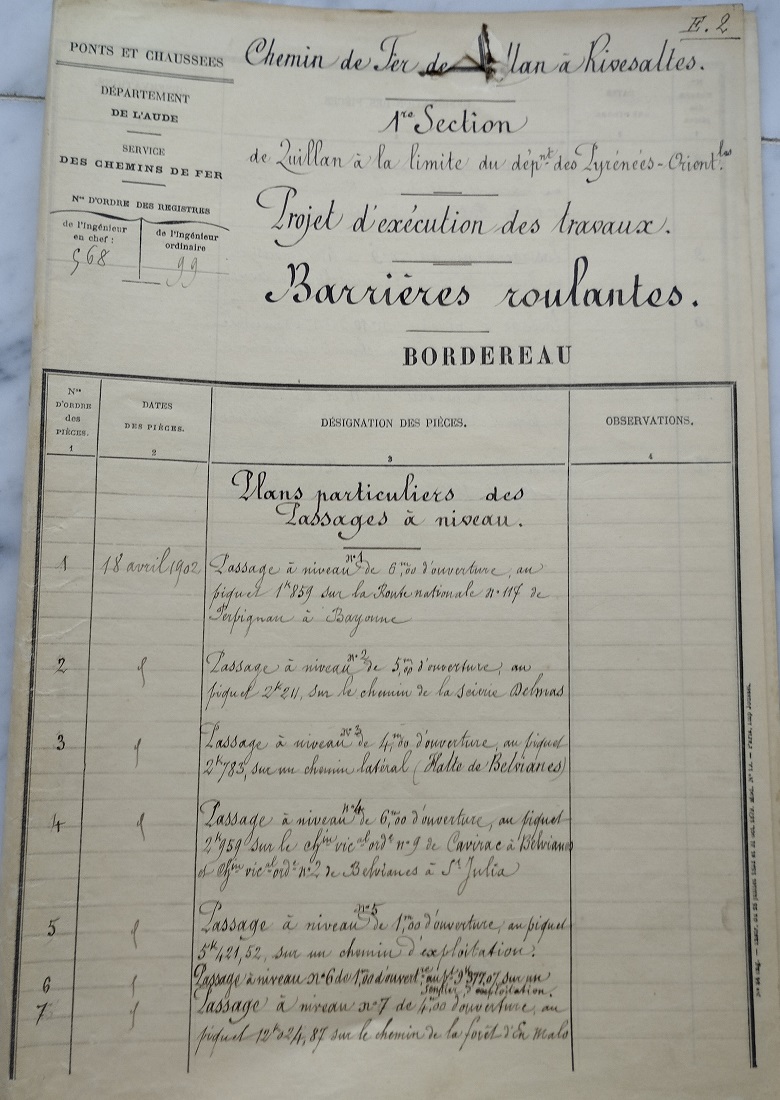 E.2
PONTS ET CHAUSSEES
DÉPARTEMENT
DE L'AUDE
SERVICE
DES CHEMINS DE FER
Nos D'ORDRE DES REGISTRES
de l'Ingénieur en chef :
568
de l'Ingénieur ordinaire
99
Chemin de Fer de llan à Rivesaltes.
1re Section
de Quillan à la limite du dépnt des Pyrénées-Orientles
Projet d'exécution des travaux.
Barrières roulantes.
BORDEREAU
Nos D'ORDRE des PIÈCES.
DATES DES PIÈCES.
DÉSIGNATION DES PIÈCES.
OBSERVATIONS.
1 2 3 4
Plans particuliers des
Passages à niveau.
1 18 avril 1902 Passage à niveau n°1 de 6m,00 d'ouverture, au
piquet 1k859 sur la Route nationale n° 117 de
Perpignan à Bayonne
2 Passage à niveau n°2 de 5m,00 d'ouverture, au
piquet 2k211, sur le chemin de la scierie Delmas
3 Passage à niveau n°3 de 4m,00 d'ouverture, au piquet
2k783, sur un chemin latéral (Halte de Belvianes)
4 Passage à niveau n°4 de 6m,00 d'ouverture, au piquet
2k959 sur le chin vical orde n° 9 de Cavirac à Belvianes
et chin vical orde n° 2 de Belvianes à St Julia
5 Passage à niveau n°5 de 1m,00 d'ouverture, au piquet
5k421,52, sur un chemin d'exploitation.
6 Passage à niveau n°6 de 1m,00 d'ouvertre, au pt 9k377,07 sur un
sentier d'exploitation.
7 Passage à niveau n°7 de 4m,00 d'ouverture, au
piquet 12k024,87 sur le chemin de la forêt d'En Malo